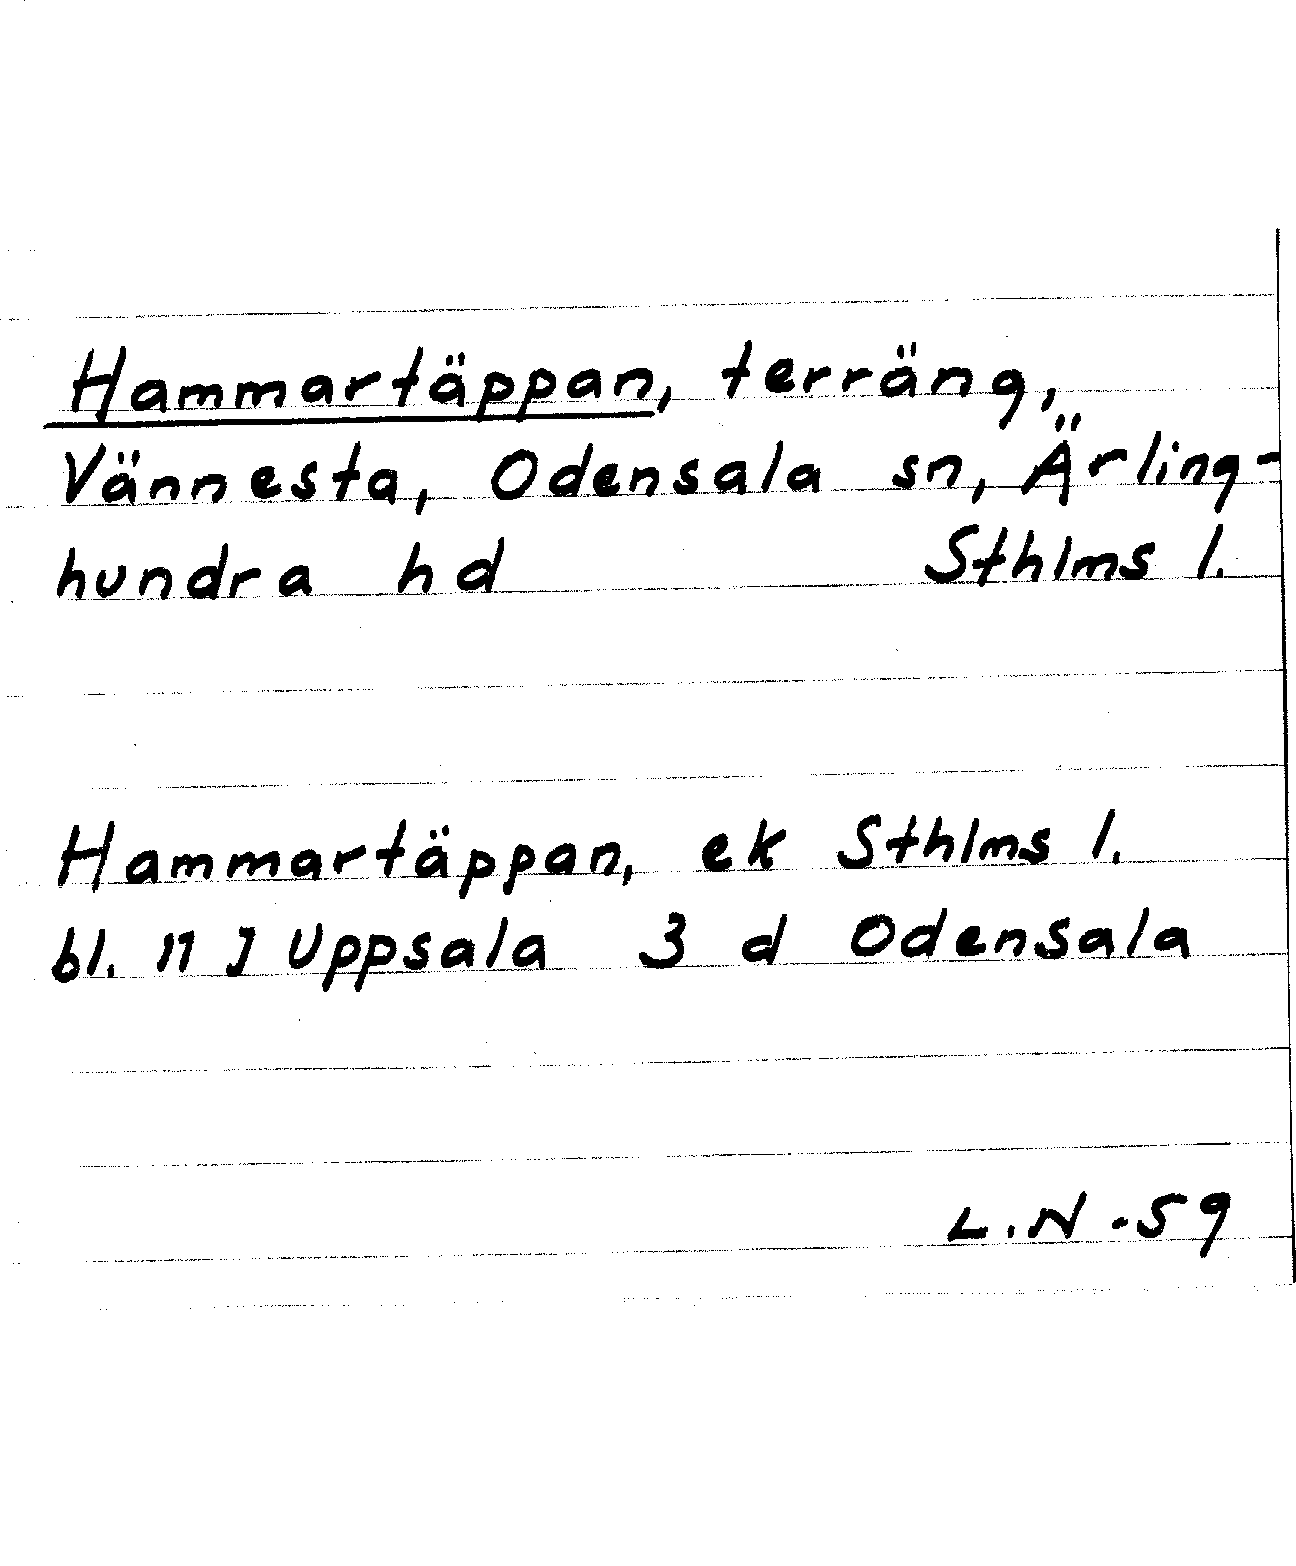 Hammartäppan, terräng,
Vännesta, Odensala sn, Ärling-
hundra hd Sthlms l.
Hammartäppan, ek Sthlms l.
bl. 11 J Uppsala 3 d Odensala
L.N -59